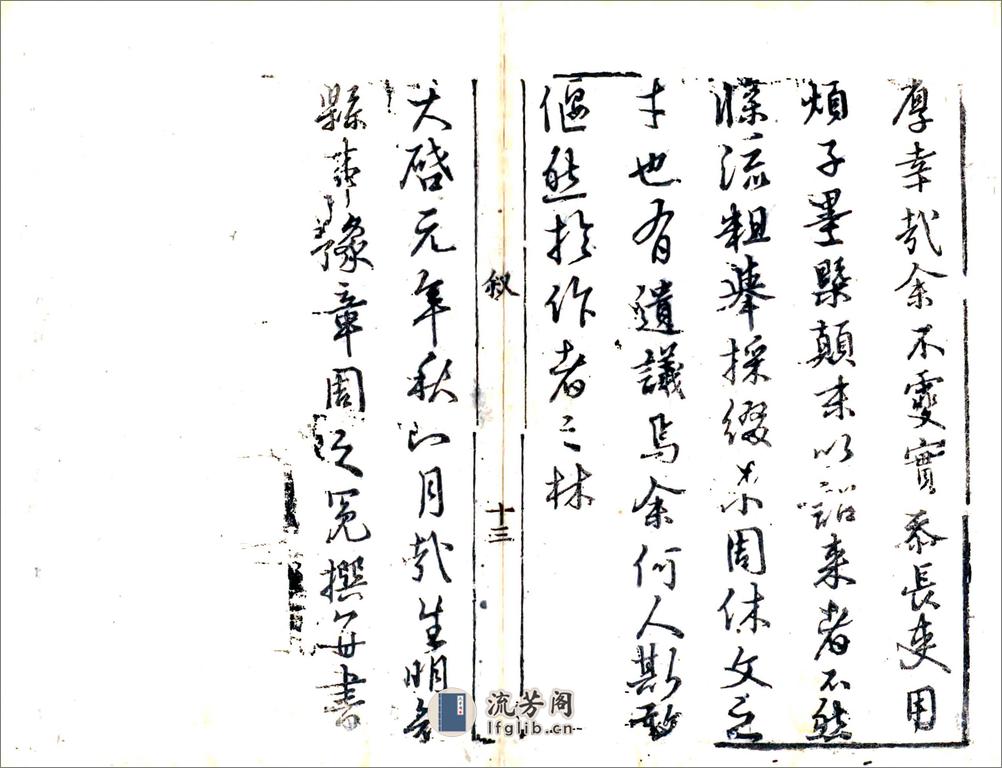 厚幸哉余不𩃎實忝長吏用
煩子墨槩顛末以詔來者不然
牒流粗舉採綴未周体文之
才也有遺議焉余何人斯敢
偃然於作者之林
叙
十三
天啓元年秋八月哉生明
縣事豫章周之冕撰并書
流芳阁
lfglib.cn